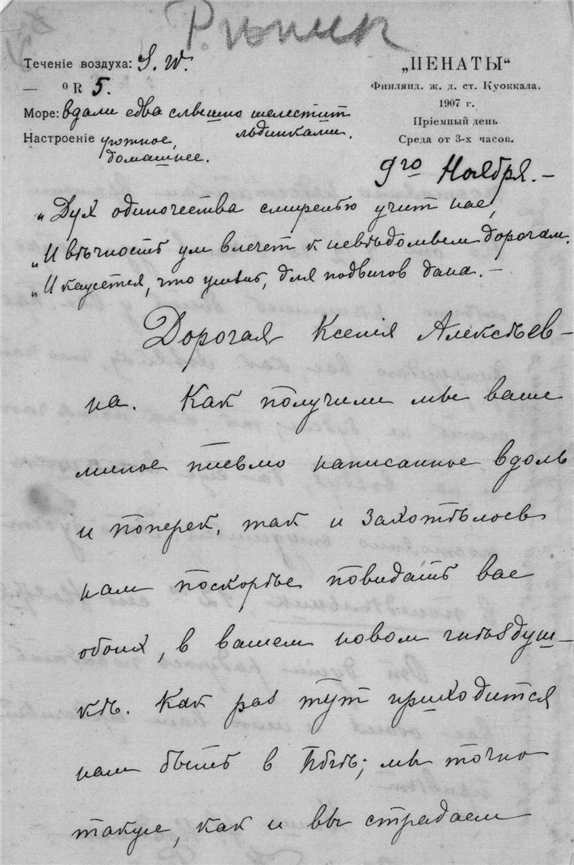 Репин
Теченіе воздуха: S. W.
— °R 5.
Море: вдали едва слышно шелестит льдинками.
Настроеніе уютное, домашнее.
„ПЕНАТЫ“
Финлянд. ж. д. ст. Куоккала.
1907 г.
Пріемный день
Среда от 3-х часов.
9го Ноября. —
„Дух одиночества смиренью учит нас,
„И вѣчность ум влечет к невѣдомым дорогам.
„И кажется, что жизнь, для подвигов дана. —
Дорогая Ксенія Алексѣев-
на. Как получили мы ваше
милое письмо написанное вдоль
и поперек, так и захотѣлось
нам поскорѣе повидать вас
обоих, в вашем новом гнѣздуш-
кѣ. Как раз тут приходится
нам быть в Пбгѣ; мы точно
также, как и вы страдаем